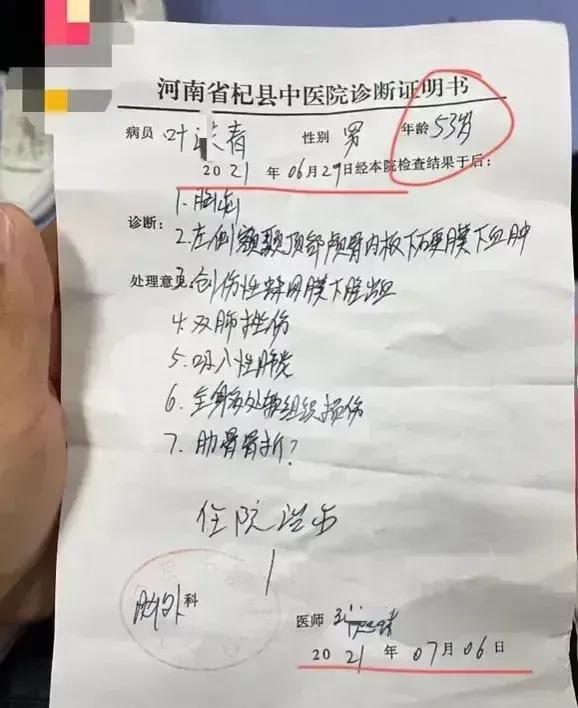 河南省杞县中医院诊断证明书
病员 叶 青 性别 男 年龄 53岁
2021年06月29日经本院检查结果于后:
诊断:
1. 脑疝
2. 左侧额颞顶部颅骨内板下硬膜下血肿
处理意见:
3. 创伤性蛛网膜下腔出血
4. 双肺挫伤
5. 吸入性肺炎
6. 全身多处软组织损伤
7. 肋骨骨折?
住院治疗
外科
医师
2021年07月06日